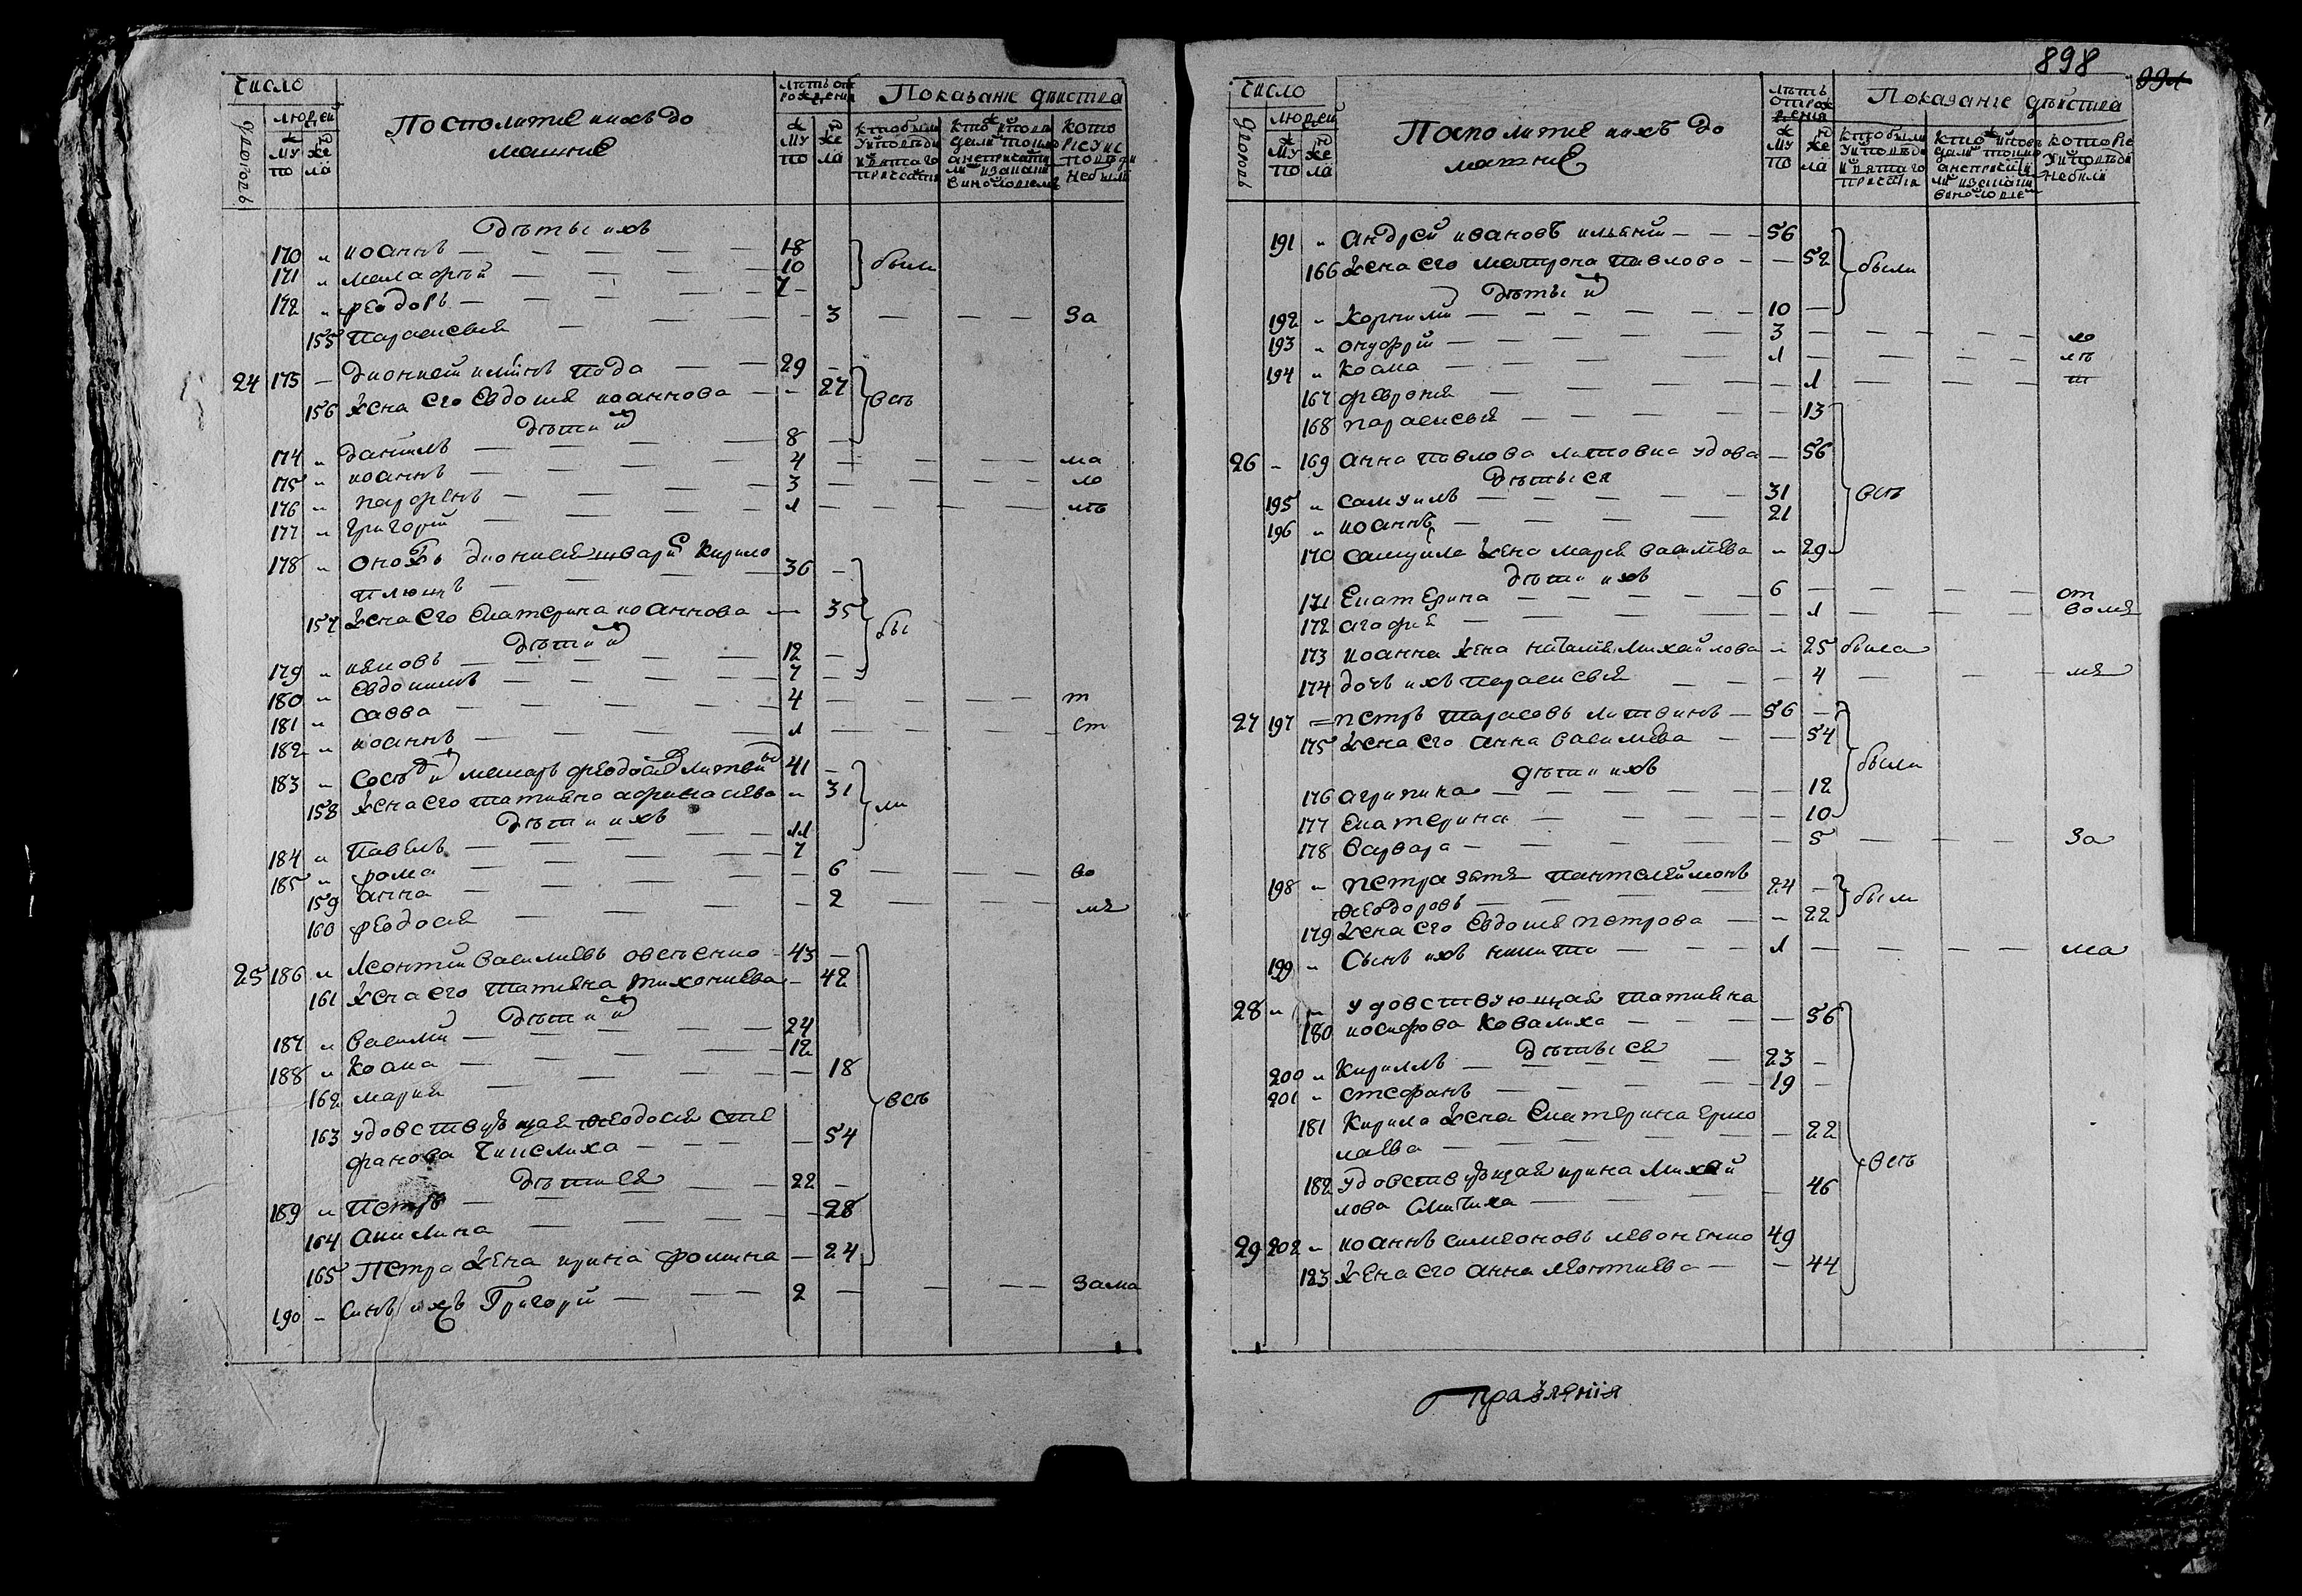 число
людей
дворовъ
му
по
же
ла
Посполитые и ихъ до
машние
лѣтъ от
рождения
му
по
же
ла
Показание действа
кто были
у исповеди
и святаго
причастия
кто исповѣ
дали токмо
а не причасти
кото
рые у ис
поведи
не были
Дѣты ихъ
170 „ иоаннъ — 18
171 „ малафѣй — 10 были
172 „ феодоръ — 7
155 параскевия — 3 — за
24 173 — Дионисий — 29
156 жена его Евдокия иоаннова — 27 всѣ
Дѣти их
174 „ даниилъ — 8
175 „ иоаннъ — 4 — ма
176 „ парфенъ — 3 — ло
177 „ григорий — 1 — лѣ
178 „ Дионисия Кирило
36
157 жена его Екатерина иоаннова — 35 бы
Дѣти их
179 „ ияковъ — 12
180 „ Евдокимъ — 7
181 „ савва — 4 — т
182 „ иоаннъ — 1 — ст
183 „ 41
158 жена его татияна афанасиева „ 31 ли
Дѣти ихъ
184 „ Павелъ — 11
185 „ фома — 7
159 анна — 6 — во
160 феодосия — 2 — мя
25 186 „ Леонтий Василиевъ овсѣенко 43 —
161 жена его татияна тихониева — 42
Дѣти их
187 „ Василий — 24
188 „ Козма — 12
162 мария — 18
всѣ
163 удовствующая феодосия сте
фанова — 54
Дѣти ея
189 „ Петръ — 22
164 Акилина — 28
165 Петра жена ирина фомина — 24
190 „ Синъ ихъ Григори — 2 — зама
898
число
людей
дворовъ
му
по
же
ла
Посполитые и ихъ до
машние
лѣтъ
от рож
дения
му
по
же
ла
Показание действа
кто были
у исповеди
и святаго
причастия
кто испове
дали токмо
а не причасти
которые
у исповеди
не были
191 „ андрей ивановъ — 56
166 жена его матрона павлова — 52 были
Дѣты их
192 „ Корнилий — 10 —
193 „ онуфрий — 3 — ма
194 „ Козма — 1 — лѣ
167 феврония — 1 — т
168 параскевия — 13
26 — 169 анна павлова удова — 56
Дѣты ея
195 „ самуилъ — 31 всѣ
196 „ иоаннъ — 21
170 самуила жена мария василиева „ 29
Дѣти ихъ
171 Екатерина — 6 — от
172 агафия — 1 — во мя
173 иоанна жена наталия михайлова „ 25 была
174 дочь ихъ параскевия — 4 — мя
27 197 — петръ тарасовъ литвинъ — 56 —
175 жена его анна василиева — 54
дѣти ихъ были
176 агрипина — 12
177 Екатерина — 10
178 Варвара — 5 — за
198 „ петра зятя пантелеймонъ 24 —
феодоровъ — были
179 жена его Евдокия петрова — 22
199 „ Сынъ ихъ никита — 1 — ма
28 „ „ удовствующая татияна
180 иосифова Ковалиха — 56
Дѣты ея
200 „ Кириллъ — 23 —
201 „ стефанъ — 19 —
181 Кирила жена Екатерина ермо
лаева — 22
182 удовствующая ирина михай всѣ
лова — 46
29 202 „ иоаннъ симеоновъ левоненко 49
183 жена его анна леонтиева — 44
правления